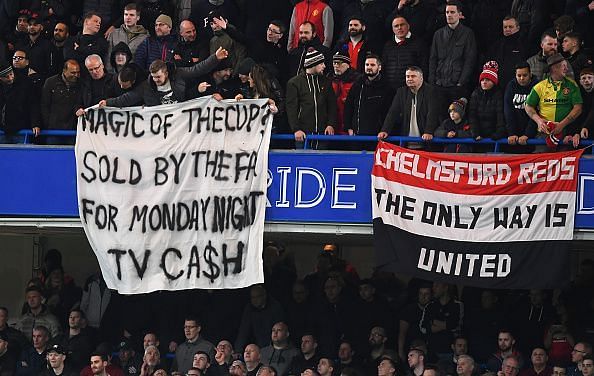 MAGIC OF THE CUP?
SOLD BY THE FA
FOR MONDAY NIGHT
TV CA$H
RIDE
CHELMSFORD REDS
THE ONLY WAY IS
UNITED
SHARP